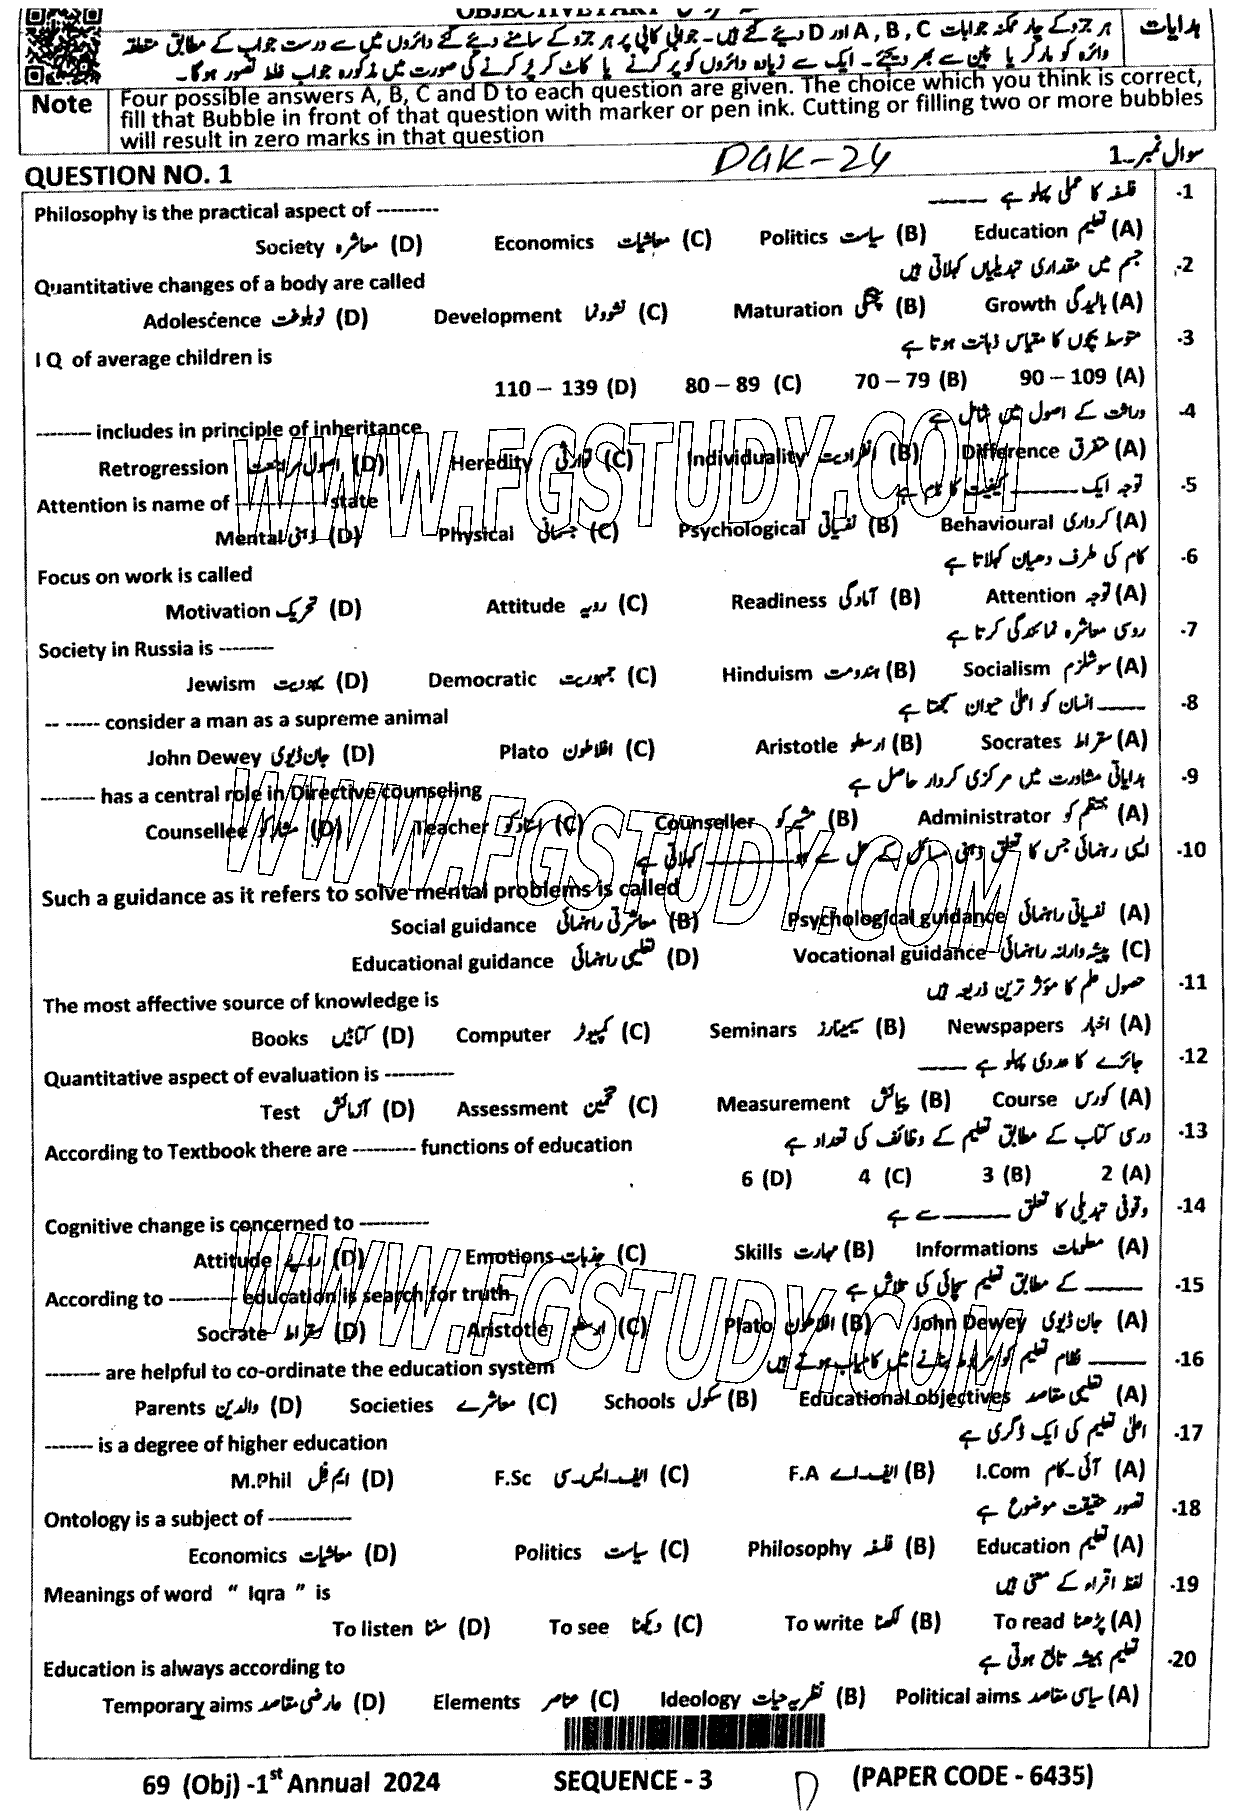 OBJECTIVE PART
ہدایات
ہر جزو کے چار ممکنہ جوابات A, B, C اور D دیئے گئے ہیں۔ جوابی کاپی پر ہر جزو کے سامنے دیئے گئے دائروں میں سے درست جواب کے مطابق متعلقہ
دائرہ کو مارکر یا پین سے بھر دیجئے۔ ایک سے زیادہ دائروں کو پر کرنے یا کاٹ کر پر کرنے کی صورت میں مذکورہ جواب غلط تصور ہوگا۔
Note
Four possible answers A, B, C and D to each question are given. The choice which you think is correct,
fill that Bubble in front of that question with marker or pen ink. Cutting or filling two or more bubbles
will result in zero marks in that question
QUESTION NO. 1 DGK-24 سوال نمبر۔1
-1 فلسفہ کا عملی پہلو ہے ------
Philosophy is the practical aspect of ---------
(A) تعلیم Education (B) سیاست Politics (C) معاشیات Economics (D) معاشرہ Society
-2 جسم میں مقداری تبدیلیاں کہلاتی ہیں
Quantitative changes of a body are called
(A) بالیدگی Growth (B) پختگی Maturation (C) نشوونما Development (D) نوبلوغت Adolescence
-3 متوسط بچوں کا مقیاس ذہانت ہوتا ہے
I Q of average children is
90 – 109 (A) 70 – 79 (B) 80 – 89 (C) 110 – 139 (D)
-4 وراثت کے اصول میں شامل ہے
-------- includes in principle of inheritance
(A) متفرق Difference (B) انفرادیت Individuality (C) توارثی Heredity (D) اصول مراجعت Retrogression
-5 توجہ ایک ------ کیفیت کا نام ہے
Attention is name of ------------- state
(A) کرداری Behavioural (B) نفسیاتی Psychological (C) جسمانی Physical (D) ذہنی Mental
-6 کام کی طرف دھیان کہلاتا ہے
Focus on work is called
(A) توجہ Attention (B) آمادگی Readiness (C) رویہ Attitude (D) تحریک Motivation
-7 روسی معاشرہ نمائندگی کرتا ہے
Society in Russia is --------
(A) سوشلزم Socialism (B) ہندومت Hinduism (C) جمہوریت Democratic (D) یہودیت Jewism
-8 ------ انسان کو اعلیٰ حیوان سمجھتا ہے
-- ----- consider a man as a supreme animal
(A) سقراط Socrates (B) ارسطو Aristotle (C) افلاطون Plato (D) جان ڈیوی John Dewey
-9 ہدایاتی مشاورت میں مرکزی کردار حاصل ہے
-------- has a central role in Directive counseling
(A) منتظم کو Administrator (B) مشیر کو Counseller (C) استاد کو Teacher (D) مشار کو Counsellee
-10 ایسی رہنمائی جس کا تعلق ذہنی مسائل کے حل سے ہو ------ کہلاتی ہے
Such a guidance as it refers to solve mental problems is called
(A) نفسیاتی راہنمائی Psychological guidance (B) معاشرتی راہنمائی Social guidance
(C) پیشہ وارانہ راہنمائی Vocational guidance (D) تعلیمی راہنمائی Educational guidance
-11 حصول علم کا مؤثر ترین ذریعہ ہیں
The most affective source of knowledge is
(A) اخبار Newspapers (B) سیمینارز Seminars (C) کمپیوٹر Computer (D) کتابیں Books
-12 جائزے کا عددی پہلو ہے ------
Quantitative aspect of evaluation is ----------
(A) کورس Course (B) پیمائش Measurement (C) تخمین Assessment (D) آزمائش Test
-13 درسی کتاب کے مطابق تعلیم کے وظائف کی تعداد ہے
According to Textbook there are --------- functions of education
2 (A) 3 (B) 4 (C) 6 (D)
-14 وقوفی تبدیلی کا تعلق ------ سے ہے
Cognitive change is concerned to ----------
(A) معلومات Informations (B) مہارت Skills (C) جذبات Emotions (D) رویے Attitude
-15 ------ کے مطابق تعلیم سچائی کی تلاش ہے
According to ---------- education is search for truth
(A) جان ڈیوی John Dewey (B) افلاطون Plato (C) ارسطو Aristotle (D) سقراط Socrate
-16 ------ نظام تعلیم کو مربوط بنانے میں کامیاب ہوتے ہیں
-------- are helpful to co-ordinate the education system
(A) تعلیمی مقاصد Educational objectives (B) سکول Schools (C) معاشرے Societies (D) والدین Parents
-17 اعلیٰ تعلیم کی ایک ڈگری ہے
------- is a degree of higher education
(A) آئی۔کام I.Com (B) ایف۔اے F.A (C) ایف۔ایس۔سی F.Sc (D) ایم فل M.Phil
-18 تصور حقیقت موضوع ہے
Ontology is a subject of ------------
(A) تعلیم Education (B) فلسفہ Philosophy (C) سیاست Politics (D) معاشیات Economics
-19 لفظ اقراء کے معنی ہیں
Meanings of word “ Iqra ” is
(A) پڑھنا To read (B) لکھنا To write (C) دیکھنا To see (D) سننا To listen
-20 تعلیم ہمیشہ تابع ہوتی ہے
Education is always according to
(A) سیاسی مقاصد Political aims (B) نظریہ حیات Ideology (C) عناصر Elements (D) عارضی مقاصد Temporary aims
69 (Obj) -1st Annual 2024 SEQUENCE - 3 D (PAPER CODE - 6435)
WWW.FGSTUDY.COM
WWW.FGSTUDY.COM
WWW.FGSTUDY.COM